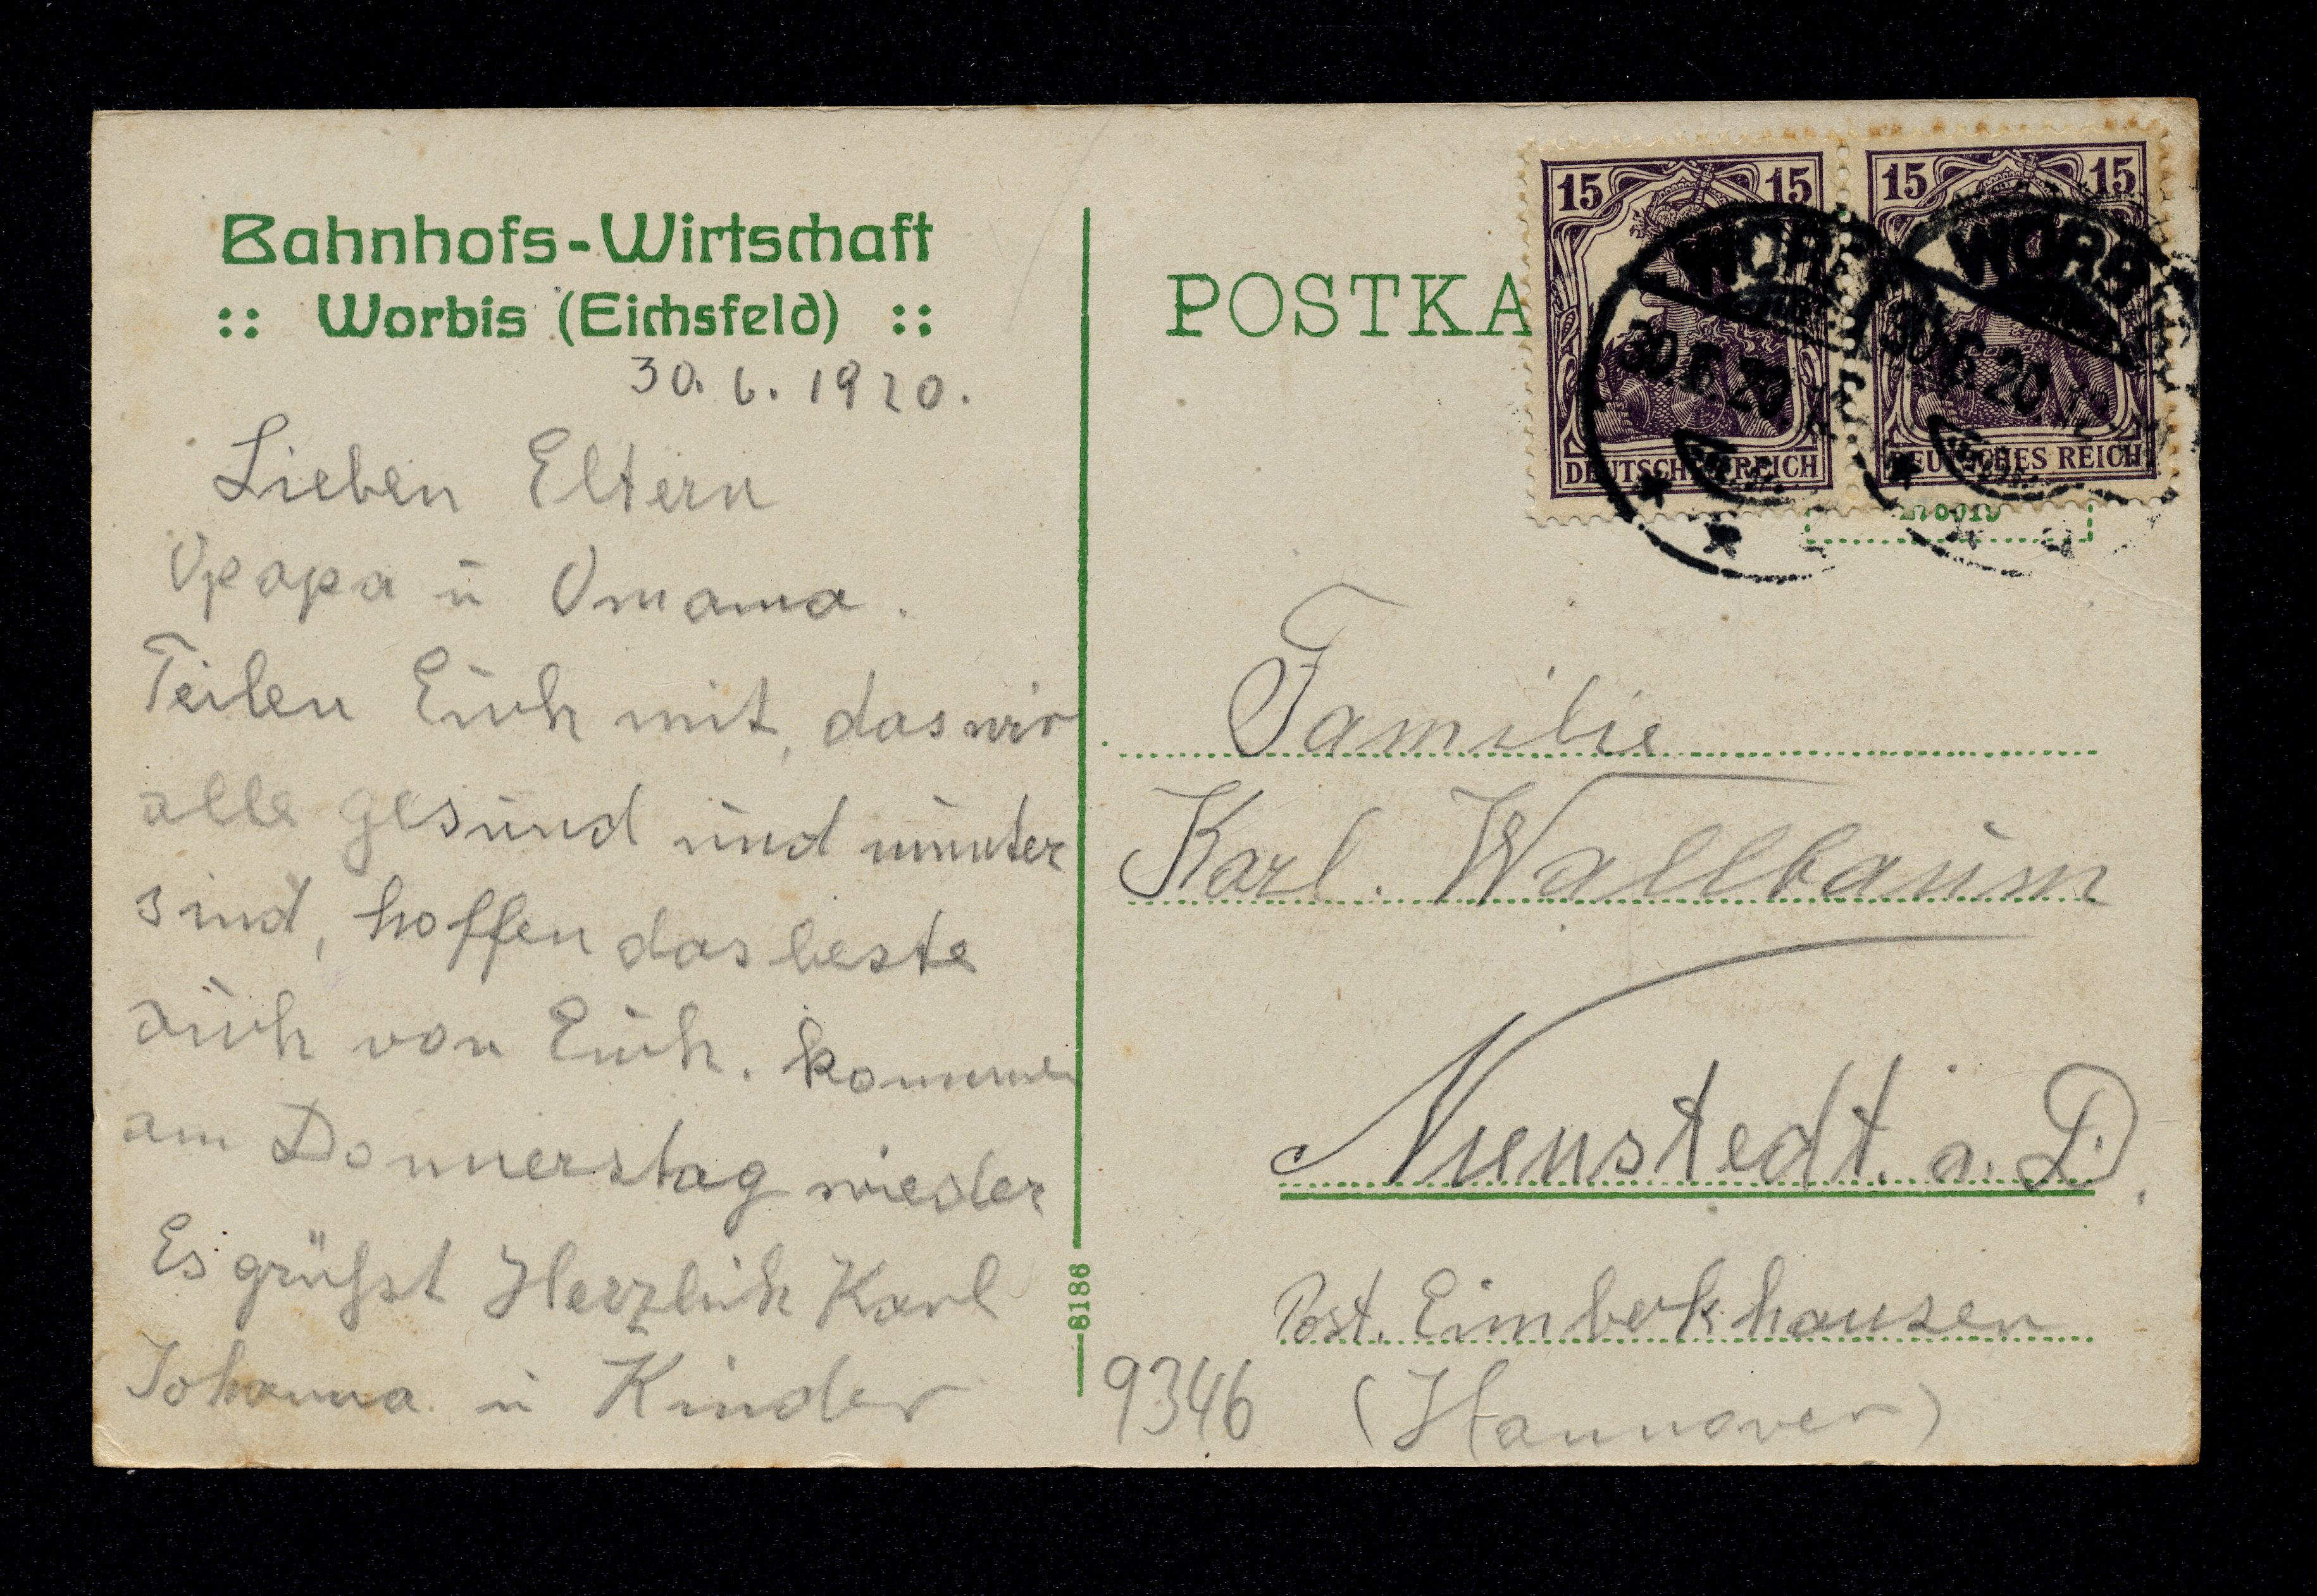 Bahnhofs-Wirtschaft
:: Worbis (Eichsfeld) ::
30. 6. 1920.
Lieben Eltern
Opapa ü Omama.
Teilen Euch mit, das wir
alle gesund und munter
sind, hoffen das beste
auch von Euch. kommen
am Donnerstag wieder
Es grüßst Herzlich Karl
Johanna ü Kinder
8186
POSTKA
15 15
DEUTSCHES REICH
15 15
DEUTSCHES REICH
WORB
30.6.20
WORB
30.6.20
Familie
Karl. Wallbaum
Nienstedt. a. D.
Post. Eimbekhausen
(Hannover)
9346